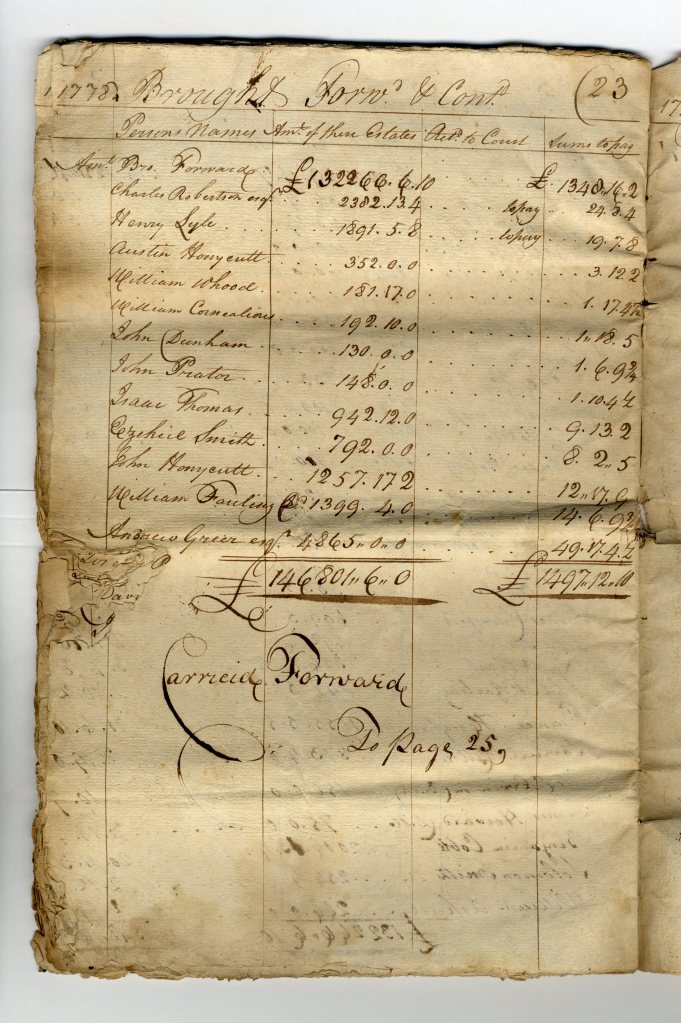 1778. Brought Forwd & Contd (23
Persons Names Amt of there Estates to Court Sums to pay
Amt Bro. Forward £132266.6.10 £ 1348,,16,,2
Charles Robertson esqr 2382.13.4 to pay 24.3.4
Henry Lyle 1891.5.8 to pay 19.7.8
Austin Honycutt 352.0.0 3.12.2
William Whood 181.17.0 1.17.4½
William Corneatious 192.10.0 1,,18.5
John Dunham 130.0.0 1.6.9¾
John Prator 148.0.0 1.10.4½
Isaac Thomas 942.12.0 9.13.2
Ezehiel Smith 792.0.0 8.2,,5
John Honycutt 1257.17.2 12,,17.9
William Fauling 1399.4.0 14.6.9¾
Andrew Greer esqr 4865,,0,,0 49.17.4½
£ 146801,,6,,0 £ 1497,,12,,10
Davi
Carrieid Forward
To page 25,